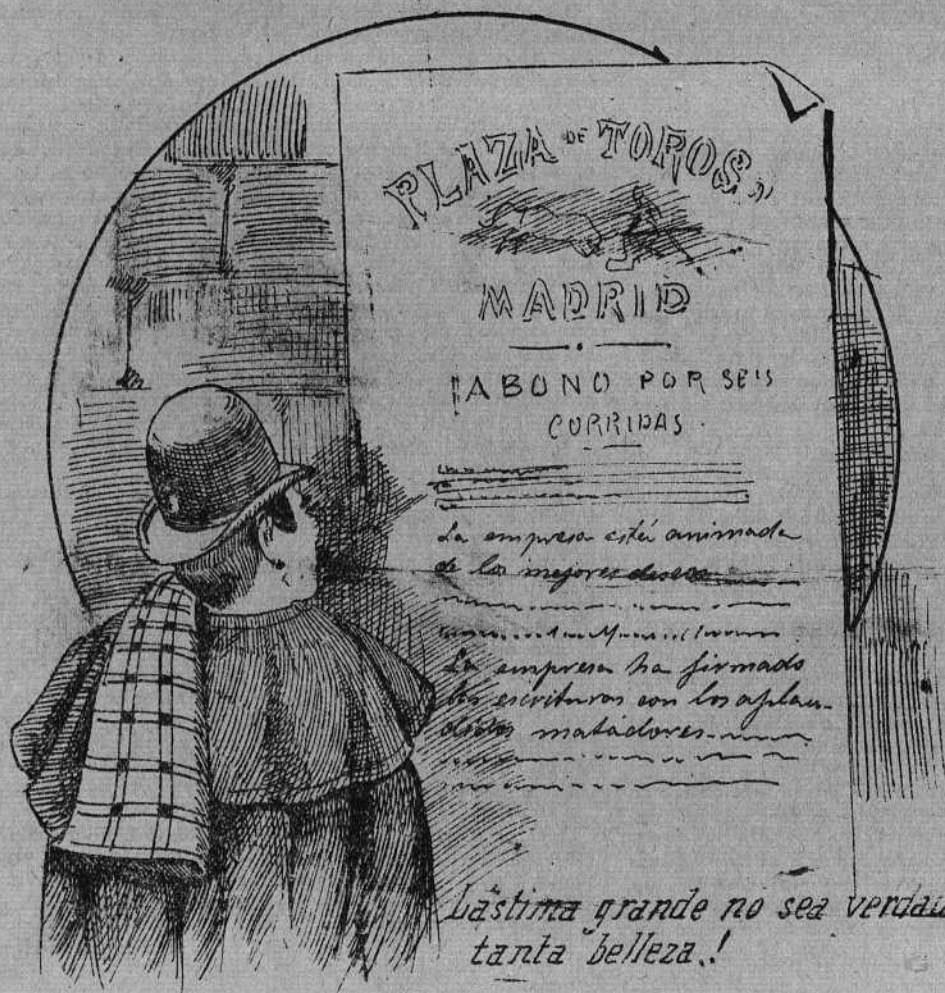 PLAZA DE TOROS
MADRID
ABONO POR SEIS
CORRIDAS.
La empresa está animada
de los mejores deseos
La empresa ha firmado
las escrituras con los aplau-
didos matadores
Lástima grande no sea verdad
tanta belleza.!